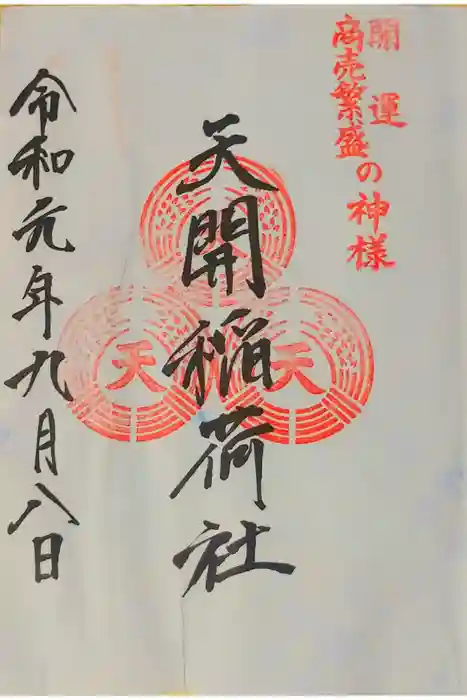 開運
商売繁盛の神様
天開稲荷社
天
天
令和元年九月八日